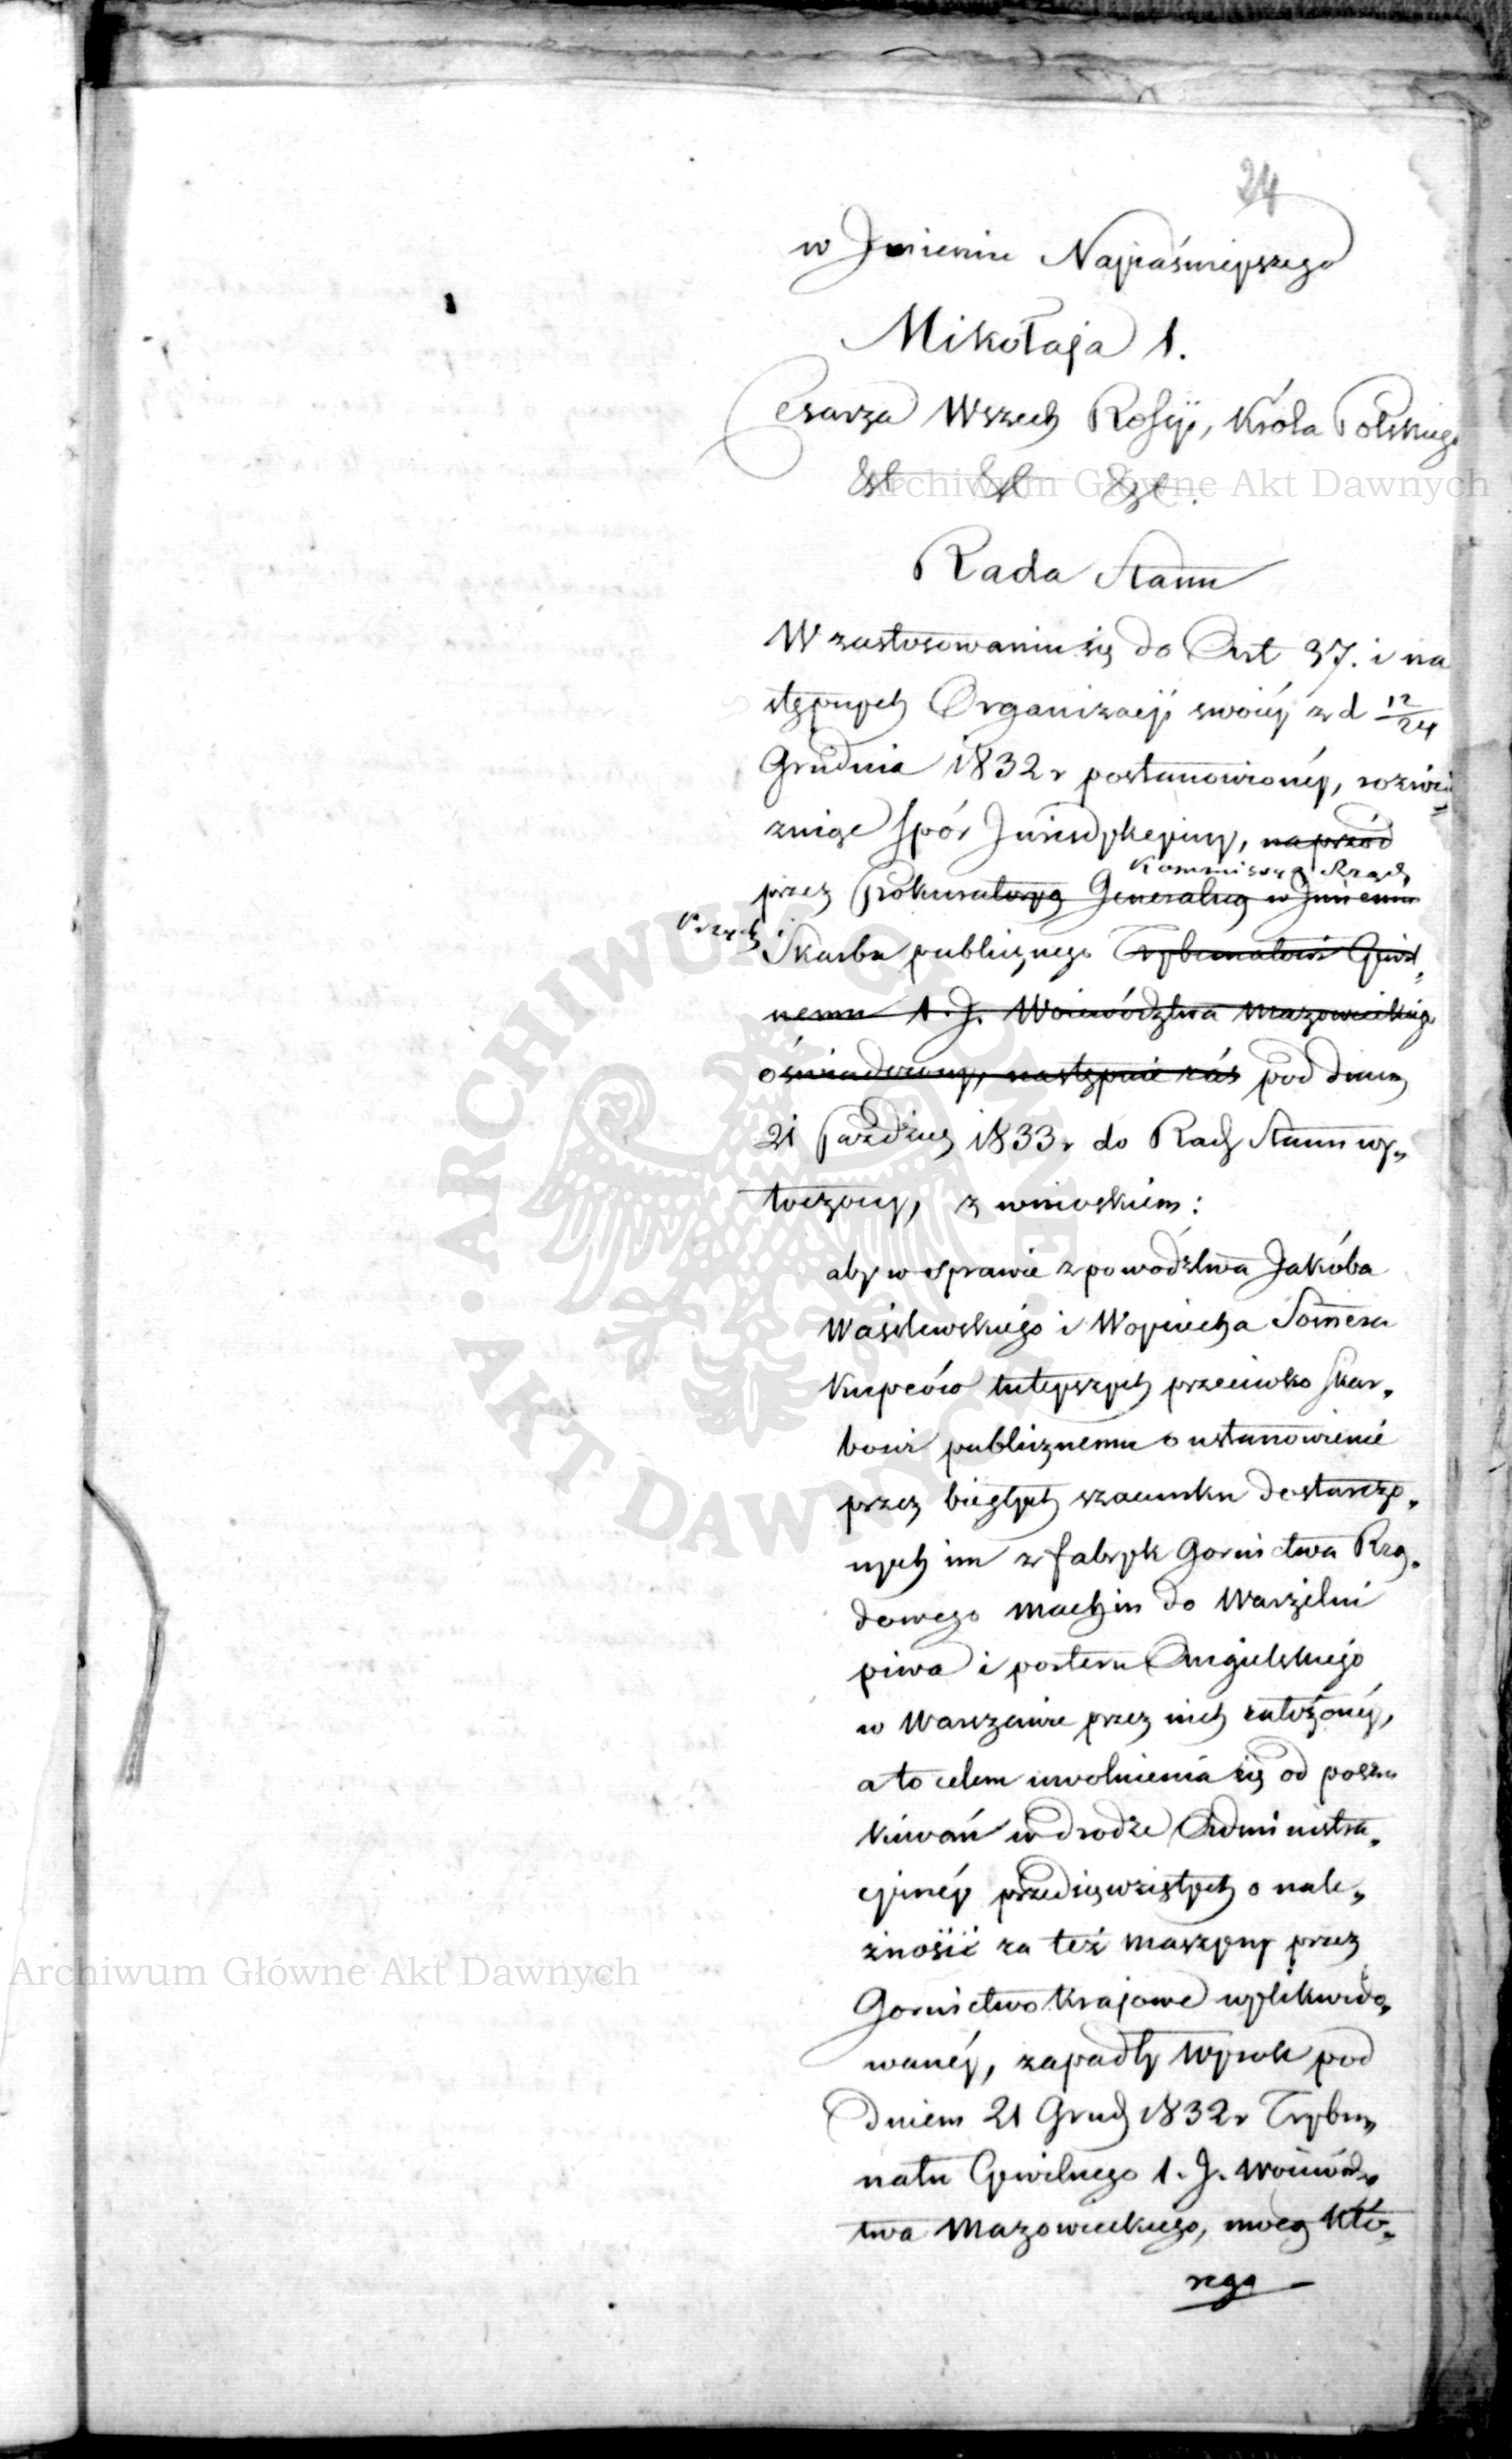 24
w Jmieniu Najjaśniejszego
Mikołaja 1.
Cesarza Wszech Rossyi, Króla Polskiego
&c &c &c.
Rada Stanu
W zastosowaniu się do Art 37. i na
stępnych Organizacyi swoiéy z d 12/24
Grudnia 1832 r postanowionéy, rozwią=
znige spór Jurisdykcyiny, naprzód
Kommissyą Rząd
przez Prokuratoryą Generalną w Jmieniu
Przych i Skarbu publicznego Trybunałowi Cywil=
nemu 1. J. Woiewództwa Mazowieckiego
oświadczony, następnie zaś pod dniem
21 Paźdźier 1833 r do Rady Stanu wy„
toczony, z wnioskiem:
aby w sprawie z powództwa Jakóba
Waśilewskiego i Woyciecha Somera
Kupców tuteyszych przeciwko Skar„
bowi publicznemu o ustanowienie
przez biegłych szacunku dostarczo„
nych im z fabryk Gornictwa Rzą„
dowego machin do Warzelni
piwa i porteru Angielskiego
w Warszawie przez nich założonéy,
a to celem uwolnienia się od poszu
kiwań w drodze Administra„
cyinéy przedsięwziętych o nale„
żność za też maszyny przez
Gornictwo Krajowe wylikwido„
wanéy, zapadły wyrok pod
dniem 21 Grud 1832 r Trybu„
nału Cywilnego 1. J. Woiewódz„
twa Mazowieckiego, mocą któ„
rego
Archiwum Główne Akt Dawnych
Archiwum Główne Akt Dawnych
ARCHIWUM GŁÓWNE · AKT DAWNYCH ·